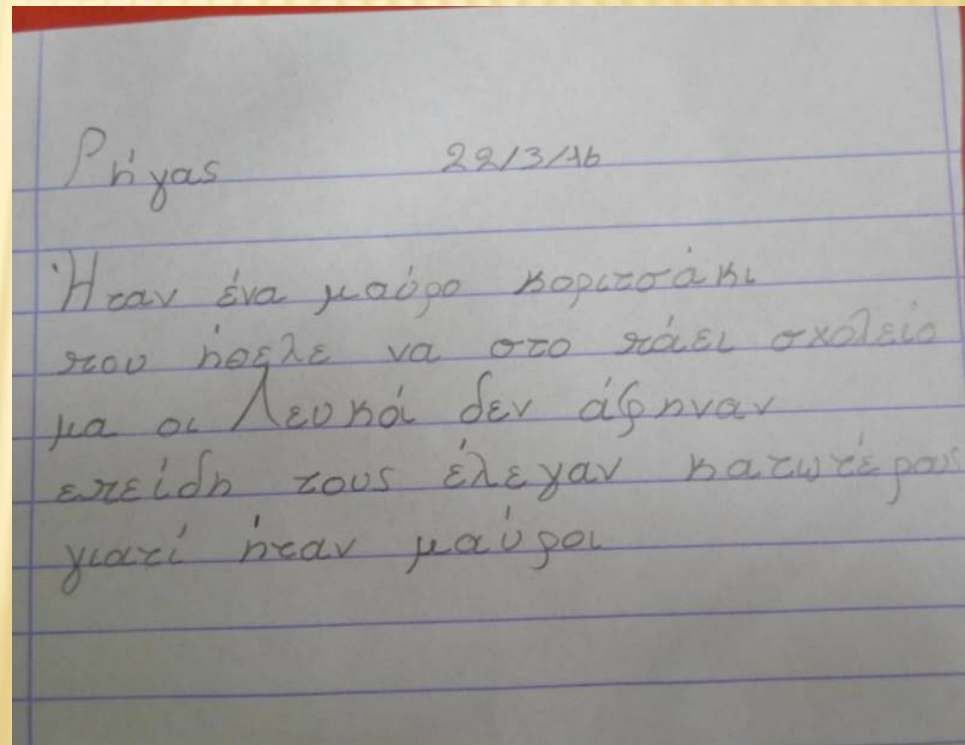 Ρήγας 22/3/16
Ήταν ένα μαύρο κοριτσάκι
που ήθελε να στο πάει σχολείο
μα οι Λευκοί δεν άφηναν
επείδη τους έλεγαν κατωτέρους
γιατί ήταν μαύροι